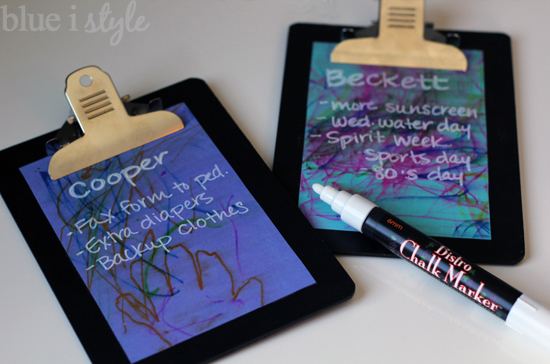 blue i style
Cooper
- Fax form to ped.
- Extra diapers
- Backup clothes
Beckett
- more sunscreen
- Wed. water day
- Spirit week
Sports day
80's day
Bistro
Chalk Marker
6mm